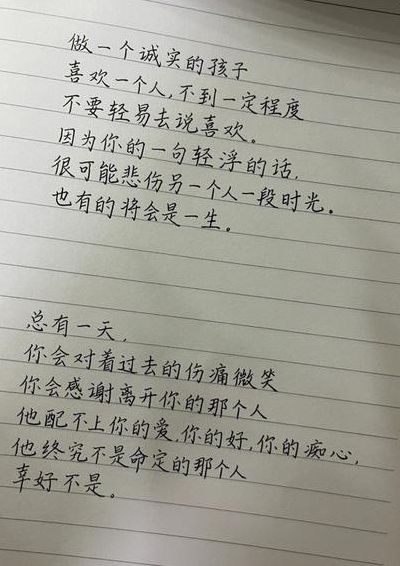 做一个诚实的孩子
喜欢一个人,不到一定程度
不要轻易去说喜欢。
因为你的一句轻浮的话,
很可能悲伤另一个人一段时光。
也有的将会是一生。
总有一天,
你会对着过去的伤痛微笑
你会感谢离开你的那个人
他配不上你的爱,你的好,你的痴心,
他终究不是命定的那个人
幸好不是。